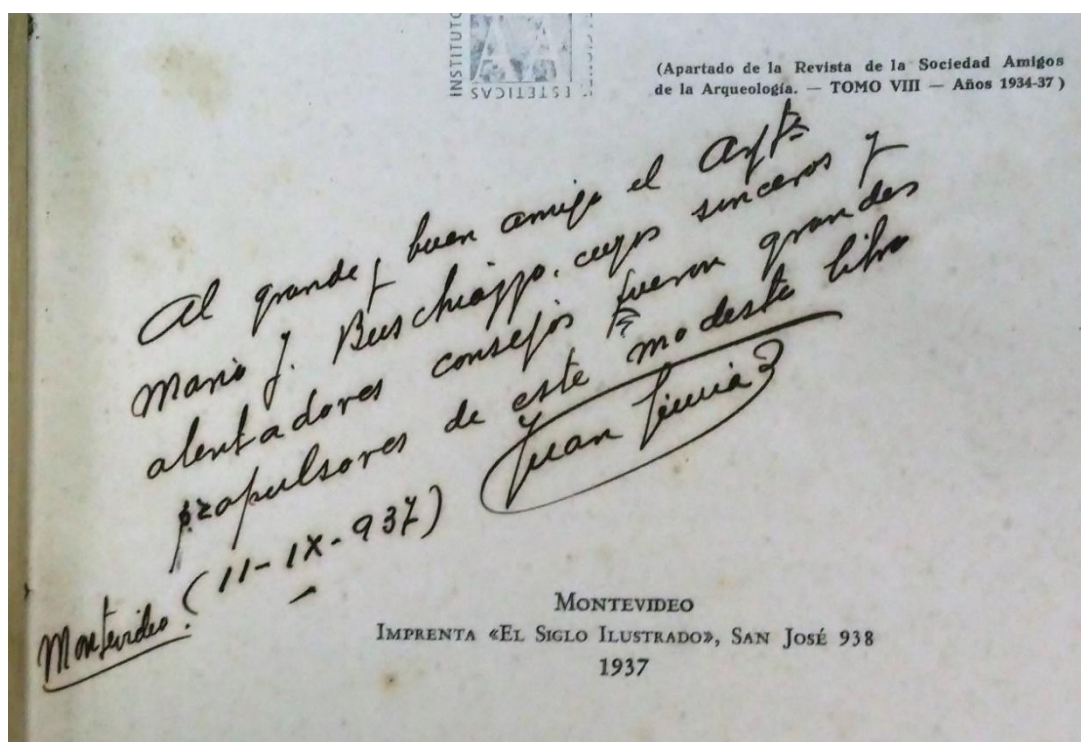 INSTITUTO
ESTETICAS
(Apartado de la Revista de la Sociedad Amigos
de la Arqueología. — TOMO VIII — Años 1934-37)
Al grande y buen amigo el Arqto
Mario J. Buschiazzo, cuyos sinceros y
alentadores consejos fueron grandes
propulsores de este modesto libro
Juan Giuria
Montevideo. (11-IX-937)
MONTEVIDEO
IMPRENTA «EL SIGLO ILUSTRADO», SAN JOSÉ 938
1937